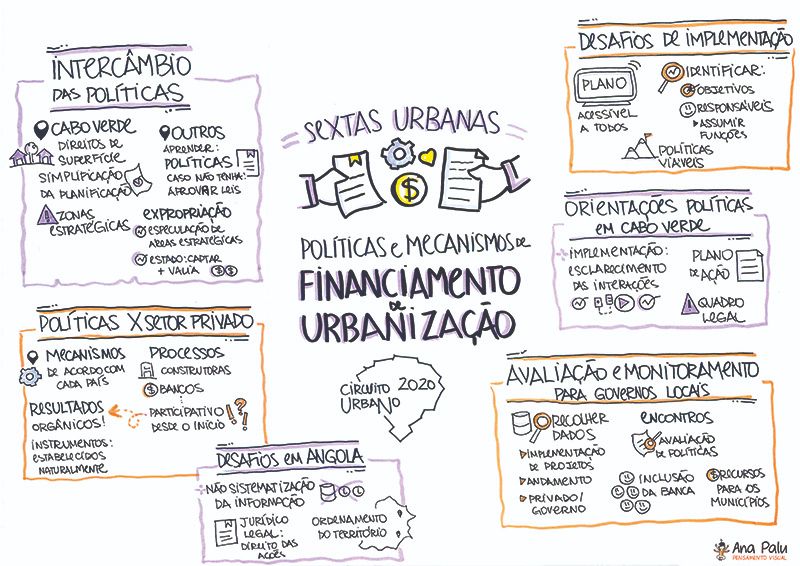 INTERCÂMBIO
DAS POLÍTICAS
CABO VERDE
DIREITOS DE
SUPERFÍCIE
SIMPLIFICAÇÃO
DA PLANIFICAÇÃO
ZONAS
ESTRATÉGICAS
OUTROS
APRENDER:
POLÍTICAS
CASO NÃO TENHA:
APROVAR LEIS
EXPROPRIAÇÃO
ESPECULAÇÃO DE
AREAS ESTRATÉGICAS
ESTADO: CAPTAR
+ VALIA
POLÍTICAS X SETOR PRIVADO
MECANISMOS
DE ACORDO COM
CADA PAÍS
RESULTADOS
ORGÂNICOS!
INSTRUMENTOS:
ESTABELECIDOS
NATURALMENTE
PROCESSOS
CONSTRUTORAS
BANCOS
PARTICIPATIVO
DESDE O INÍCIO
!?
DESAFIOS EM ANGOLA
NÃO SISTEMATIZAÇÃO
DA INFORMAÇÃO
JURÍDICO
LEGAL:
DIREITO DAS
AÇÕES
ORDENAMENTO
DO TERRITÓRIO
SEXTAS URBANAS
POLÍTICAS e MECANISMOS DE
FINANCIAMENTO
DE
URBANIZAÇÃO
CIRCUITO 2020
URBANO
DESAFIOS DE IMPLEMENTAÇÃO
PLANO
ACESSÍVEL
A TODOS
IDENTIFICAR:
OBJETIVOS
RESPONSÁVEIS
ASSUMIR
FUNÇÕES
POLÍTICAS
VIÁVEIS
ORIENTAÇÕES POLÍTICAS
EM CABO VERDE
IMPLEMENTAÇÃO:
ESCLARECIMENTO
DAS INTERAÇÕES
PLANO
DE AÇÃO
QUADRO
LEGAL
AVALIAÇÃO e MONITORAMENTO
PARA GOVERNOS LOCAIS
RECOLHER
DADOS
IMPLEMENTAÇÃO
DE PROJETOS
ANDAMENTO
PRIVADO/
GOVERNO
ENCONTROS
AVALIAÇÃO
DE POLÍTICAS
INCLUSÃO
DA BANCA
RECURSOS
PARA OS
MUNICÍPIOS
Ana Palu
PENSAMENTO VISUAL